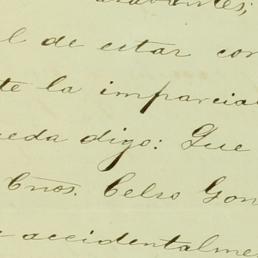 l de estar con
te la imparcia
ueda digo: Que
Cnos. Celso Gon
accidentalme